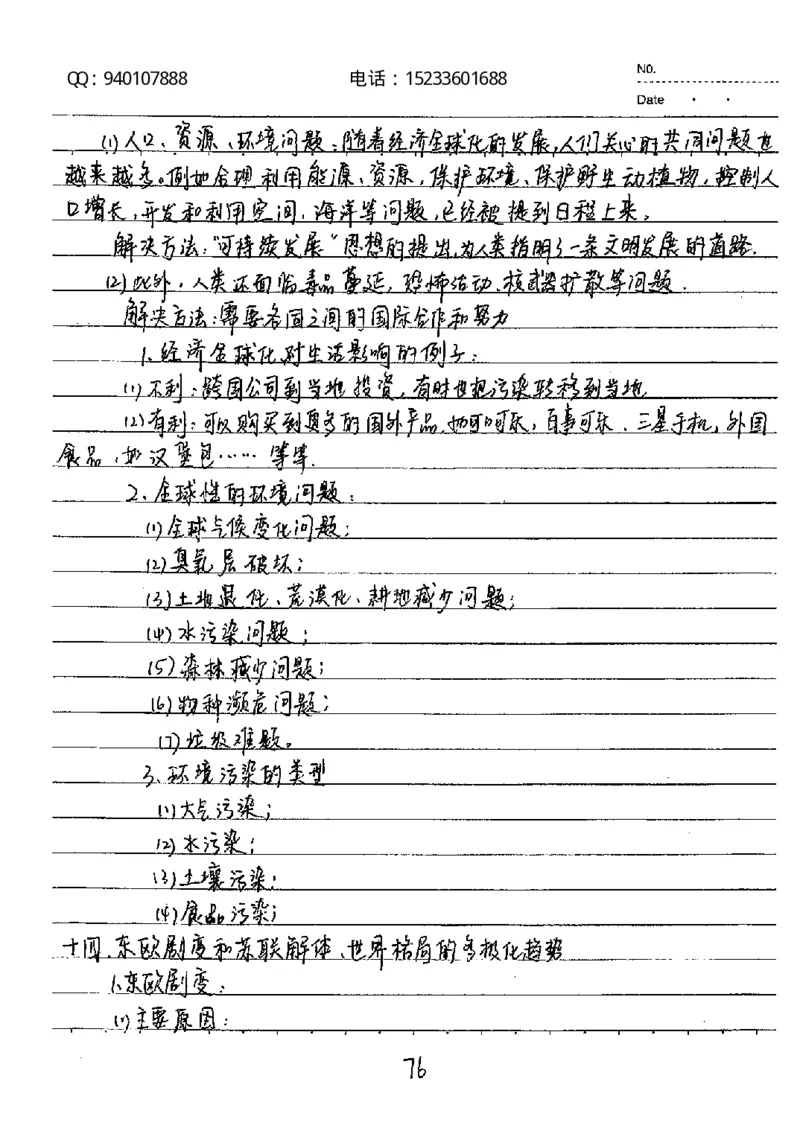 QQ：940107888 电话：15233601688 NO.
Date · ·
(1)人口、资源、环境问题：随着经济全球化的发展，人们关心的共同问题也
越来越多。例如合理利用能源、资源，保护环境、保护野生动植物，控制人
口增长，开发和利用空间，海洋等问题，已经被提到日程上来。
解决方法："可持续发展"思想的提出，为人类指明了一条文明发展的道路．
(2)此外，人类还面临毒品蔓延，恐怖活动、核武器扩散等问题．
解决方法：需要各国之间的国际合作和努力
1、经济全球化对生活影响的例子：
(1)不利：跨国公司到当地投资，有时也把污染转移到当地
(2)有利：可以购买到更多的国外产品，如可口可乐，百事可乐、三星手机，外国
食品，如汉堡包……等等．
2、全球性的环境问题：
(1)全球气候变化问题；
(2)臭氧层破坏；
(3)土地退化、荒漠化、耕地减少问题；
(4)水污染问题；
(5)森林减少问题；
(6)物种濒危问题；
(7)垃圾难题。
3、环境污染的类型
(1)大气污染；
(2)水污染；
(3)土壤污染；
(4)食品污染；
十四、东欧剧变和苏联解体、世界格局的多极化趋势
1、东欧剧变：
(1)主要原因：
76